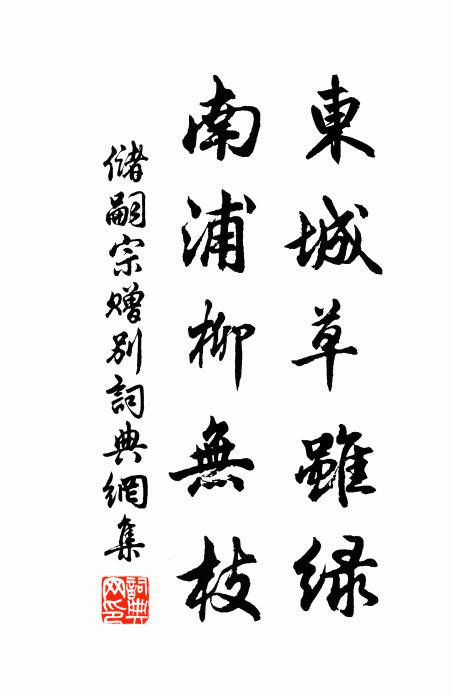 東城草雖緑
南浦柳無枝
儲嗣宗贈别詞典網集
詞典網印